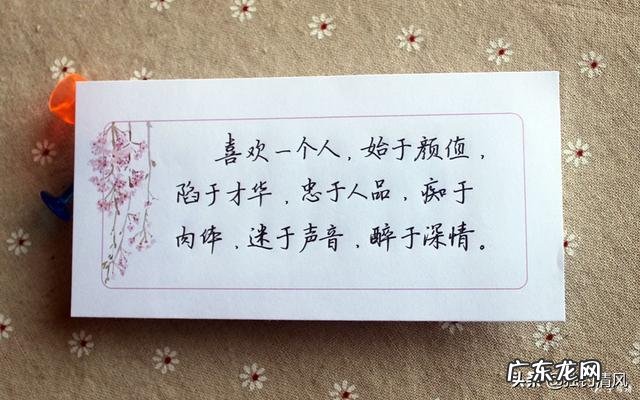 喜欢一个人，始于颜值，
陷于才华，忠于人品，痴于
肉体，迷于声音，醉于深情。
广东龙网